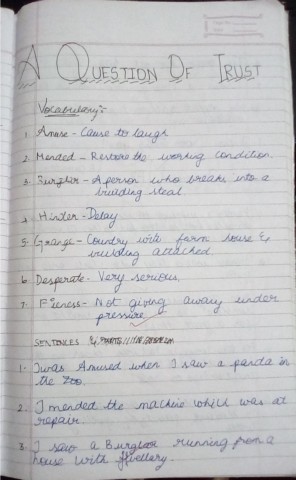 A QUESTION OF TRUST
Vocabulary:-
1. Amuse - Cause to laugh
2. Mended - Restore the working condition.
3. Burglar - A person who breaks into a
building steal.
4. Hinder - Delay
5. Grange - Country with farm house &
building attached
6. Desperate - Very serious,
7. Firness - Not giving away under
pressure
SENTENCES
1. I was Amused when I saw a panda in
the Zoo.
2. I mended the machine which was at
repair.
3. I saw a Burglar running from a
house with jwellary.